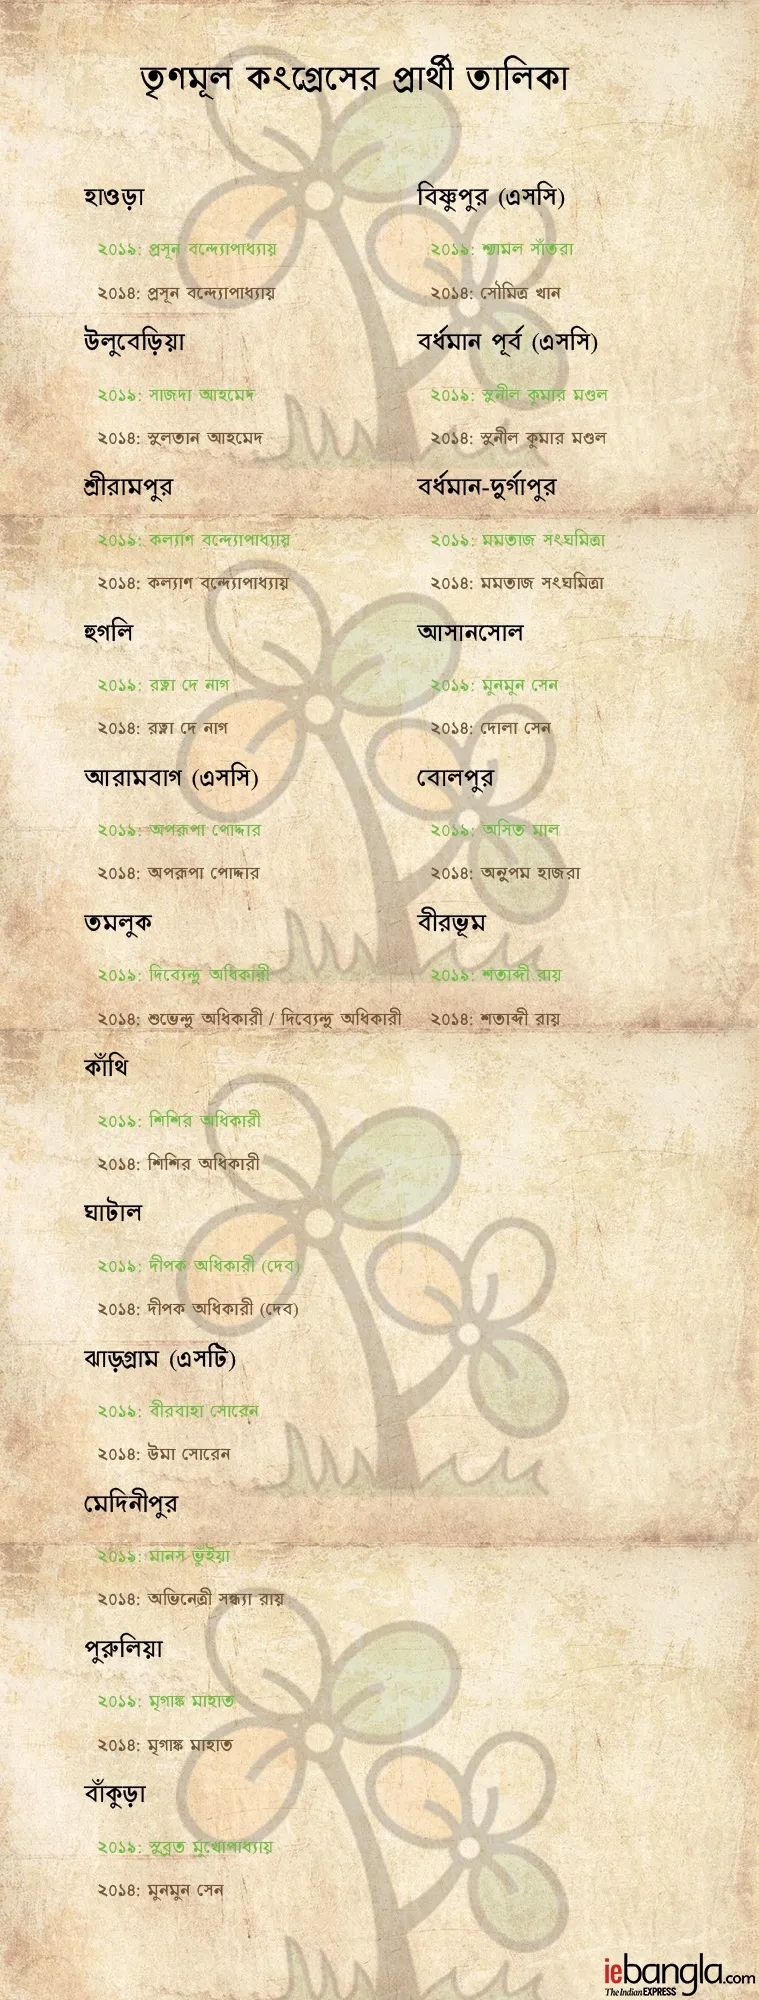 তৃণমূল কংগ্রেসের প্রার্থী তালিকা
হাওড়া
২০১৯: প্রসূন বন্দ্যোপাধ্যায়
২০১৪: প্রসূন বন্দ্যোপাধ্যায়
উলুবেড়িয়া
২০১৯: সাজদা আহমেদ
২০১৪: সুলতান আহমেদ
শ্রীরামপুর
২০১৯: কল্যাণ বন্দ্যোপাধ্যায়
২০১৪: কল্যাণ বন্দ্যোপাধ্যায়
হুগলি
২০১৯: রত্না দে নাগ
২০১৪: রত্না দে নাগ
আরামবাগ (এসসি)
২০১৯: অপরূপা পোদ্দার
২০১৪: অপরূপা পোদ্দার
তমলুক
২০১৯: দিব্যেন্দু অধিকারী
২০১৪: শুভেন্দু অধিকারী / দিব্যেন্দু অধিকারী
কাঁথি
২০১৯: শিশির অধিকারী
২০১৪: শিশির অধিকারী
ঘাটাল
২০১৯: দীপক অধিকারী (দেব)
২০১৪: দীপক অধিকারী (দেব)
ঝাড়গ্রাম (এসটি)
২০১৯: বীরবাহা সোরেন
২০১৪: উমা সোরেন
মেদিনীপুর
২০১৯: মানস ভুঁইয়া
২০১৪: অভিনেত্রী সন্ধ্যা রায়
পুরুলিয়া
২০১৯: মৃগাঙ্ক মাহাত
২০১৪: মৃগাঙ্ক মাহাত
বাঁকুড়া
২০১৯: সুব্রত মুখোপাধ্যায়
২০১৪: মুনমুন সেন
বিষ্ণুপুর (এসসি)
২০১৯: শ্যামল সাঁতরা
২০১৪: সৌমিত্র খান
বর্ধমান পূর্ব (এসসি)
২০১৯: সুনীল কুমার মণ্ডল
২০১৪: সুনীল কুমার মণ্ডল
বর্ধমান-দুর্গাপুর
২০১৯: মমতাজ সংঘমিত্রা
২০১৪: মমতাজ সংঘমিত্রা
আসানসোল
২০১৯: মুনমুন সেন
২০১৪: দোলা সেন
বোলপুর
২০১৯: অসিত মাল
২০১৪: অনুপম হাজরা
বীরভূম
২০১৯: শতাব্দী রায়
২০১৪: শতাব্দী রায়
iebangla.com
The Indian EXPRESS